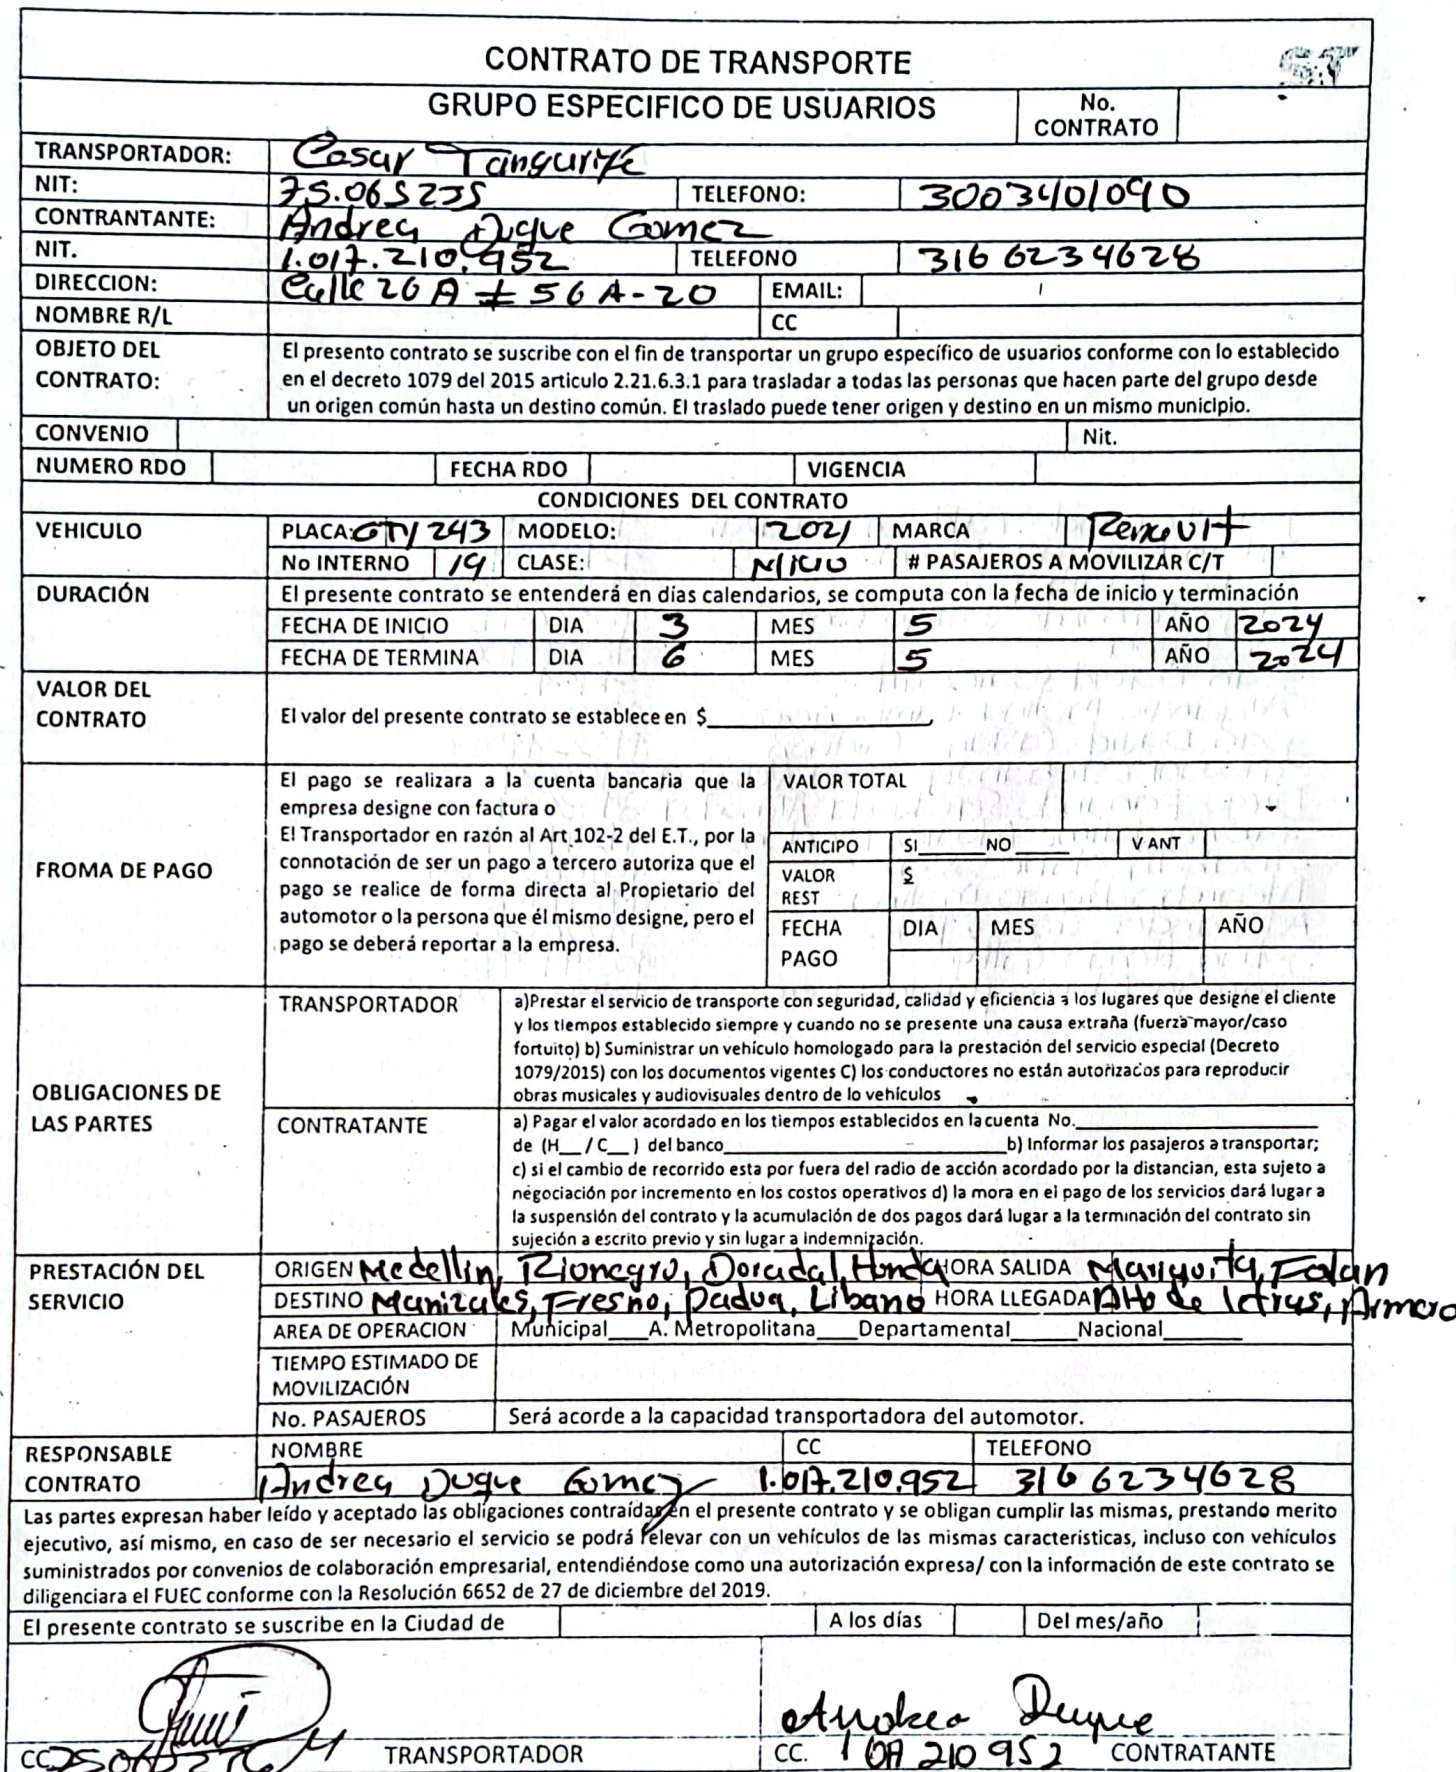 CONTRATO DE TRANSPORTE
GRUPO ESPECIFICO DE USUARIOS No. CONTRATO
TRANSPORTADOR: Cesar
NIT: 75.065235 TELEFONO: 3003401090
CONTRANTANTE: Andrea Duque Gomez
NIT. 1.017.210.952 TELEFONO 316 6234628
DIRECCION: Calle 26 A # 56 A-20 EMAIL:
NOMBRE R/L CC
OBJETO DEL CONTRATO: El presento contrato se suscribe con el fin de transportar un grupo específico de usuarios conforme con lo establecido
en el decreto 1079 del 2015 articulo 2.21.6.3.1 para trasladar a todas las personas que hacen parte del grupo desde
un origen común hasta un destino común. El traslado puede tener origen y destino en un mismo municipio.
CONVENIO Nit.
NUMERO RDO FECHA RDO VIGENCIA
CONDICIONES DEL CONTRATO
VEHICULO PLACA: GTY 243 MODELO: 2021 MARCA Renault
No INTERNO 19 CLASE: # PASAJEROS A MOVILIZAR C/T
DURACIÓN El presente contrato se entenderá en días calendarios, se computa con la fecha de inicio y terminación
FECHA DE INICIO DIA 3 MES 5 AÑO 2024
FECHA DE TERMINA DIA 6 MES 5 AÑO 2024
VALOR DEL CONTRATO El valor del presente contrato se establece en $
FROMA DE PAGO
El pago se realizara a la cuenta bancaria que la
empresa designe con factura o
El Transportador en razón al Art 102-2 del E.T., por la
connotación de ser un pago a tercero autoriza que el
pago se realice de forma directa al Propietario del
automotor o la persona que él mismo designe, pero el
pago se deberá reportar a la empresa.
VALOR TOTAL
ANTICIPO SI____NO____ V ANT
VALOR REST $
FECHA PAGO DIA MES AÑO
OBLIGACIONES DE LAS PARTES
TRANSPORTADOR a)Prestar el servicio de transporte con seguridad, calidad y eficiencia a los lugares que designe el cliente
y los tiempos establecido siempre y cuando no se presente una causa extraña (fuerza mayor/caso
fortuito) b) Suministrar un vehículo homologado para la prestación del servicio especial (Decreto
1079/2015) con los documentos vigentes C) los conductores no están autorizados para reproducir
obras musicales y audiovisuales dentro de lo vehículos
CONTRATANTE a) Pagar el valor acordado en los tiempos establecidos en la cuenta No.
de (H__ / C__ ) del banco____ b) Informar los pasajeros a transportar;
c) si el cambio de recorrido esta por fuera del radio de acción acordado por la distancian, esta sujeto a
negociación por incremento en los costos operativos d) la mora en el pago de los servicios dará lugar a
la suspensión del contrato y la acumulación de dos pagos dará lugar a la terminación del contrato sin
sujeción a escrito previo y sin lugar a indemnización.
PRESTACIÓN DEL SERVICIO
ORIGEN Medellin, Rionegro, Doradal, Honda HORA SALIDA Mariquita, Falan
DESTINO Manizales, Fresno, Padua, Libano HORA LLEGADA Alto de letras, Armero
AREA DE OPERACION Municipal___A. Metropolitana___Departamental____Nacional____
TIEMPO ESTIMADO DE MOVILIZACIÓN
No. PASAJEROS Será acorde a la capacidad transportadora del automotor.
RESPONSABLE CONTRATO NOMBRE CC TELEFONO
Andrea Duque Gomez 1.017.210.952 316 6234628
Las partes expresan haber leído y aceptado las obligaciones contraídas en el presente contrato y se obligan cumplir las mismas, prestando merito
ejecutivo, así mismo, en caso de ser necesario el servicio se podrá relevar con un vehículos de las mismas características, incluso con vehículos
suministrados por convenios de colaboración empresarial, entendiéndose como una autorización expresa/ con la información de este contrato se
diligenciara el FUEC conforme con la Resolución 6652 de 27 de diciembre del 2019.
El presente contrato se suscribe en la Ciudad de A los días Del mes/año
Andrea Duque
CC. TRANSPORTADOR CC. 1 017 210 952 CONTRATANTE